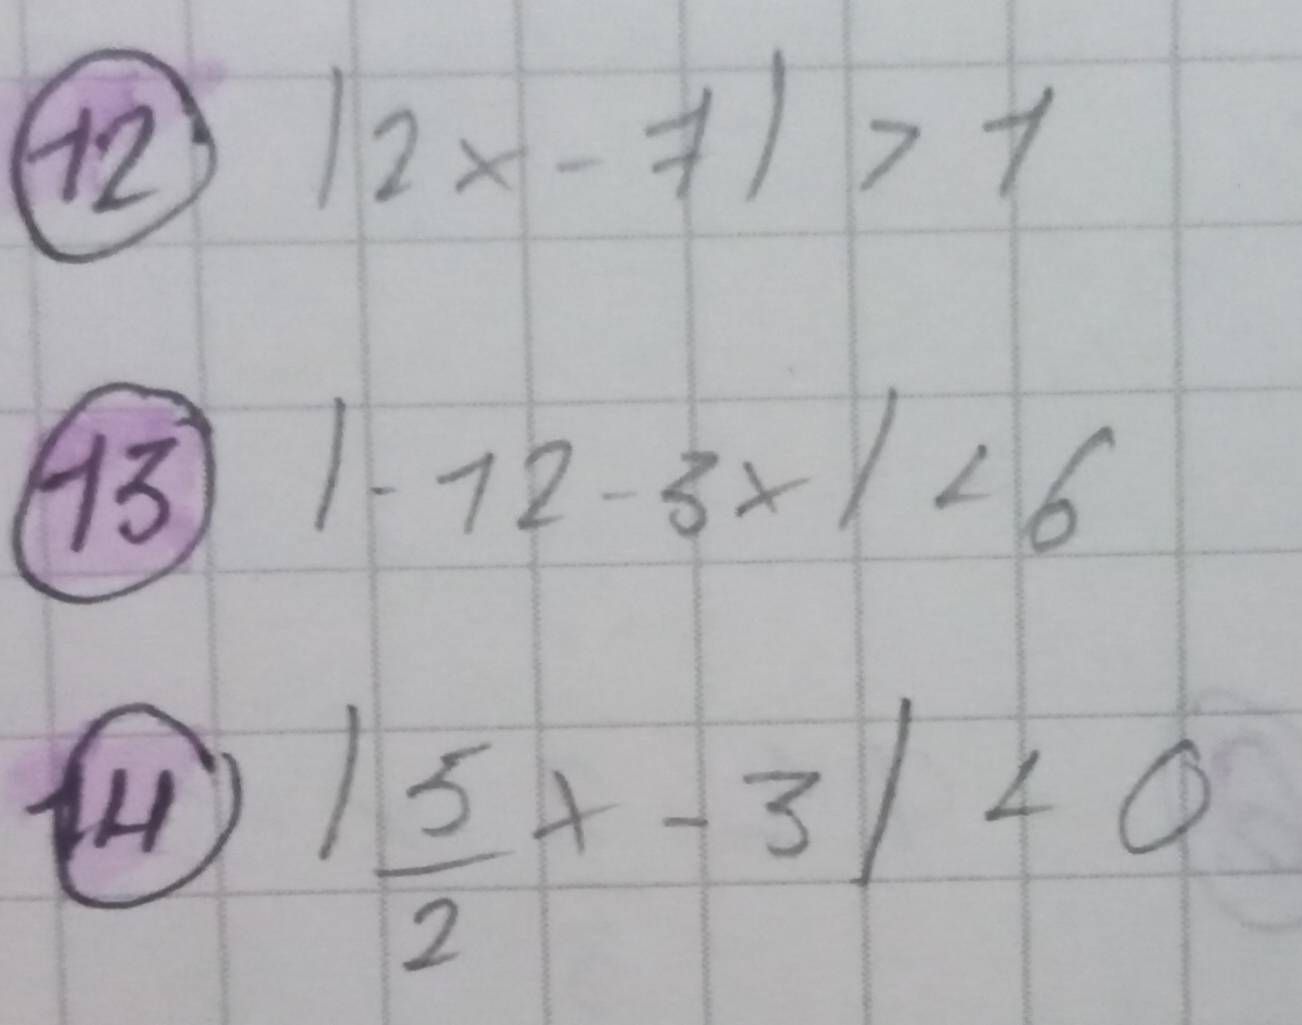 12 |2x - 7| > 1
13 |-12 - 3x| < 6
14 |5/2 x - 3| < 0